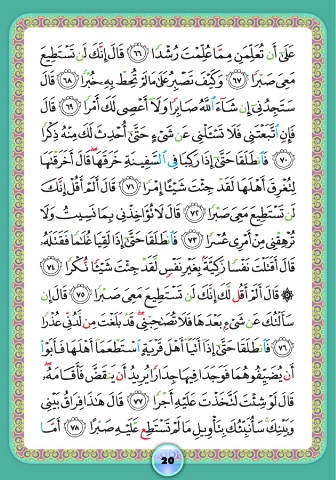 عَلَىٰ أَن تُعَلِّمَنِ مِمَّا عُلِّمْتَ رُشْدًا ﴿٦٦﴾ قَالَ إِنَّكَ لَن تَسْتَطِيعَ
مَعِيَ صَبْرًا ﴿٦٧﴾ وَكَيْفَ تَصْبِرُ عَلَىٰ مَا لَمْ تُحِطْ بِهِۦ خُبْرًا ﴿٦٨﴾ قَالَ
سَتَجِدُنِىٓ إِن شَآءَ ٱللَّهُ صَابِرًا وَلَآ أَعْصِى لَكَ أَمْرًا ﴿٦٩﴾ قَالَ
فَإِنِ ٱتَّبَعْتَنِى فَلَا تَسْـَٔلْنِى عَن شَىْءٍ حَتَّىٰٓ أُحْدِثَ لَكَ مِنْهُ ذِكْرًا
﴿٧٠﴾ فَٱنطَلَقَا حَتَّىٰٓ إِذَا رَكِبَا فِى ٱلسَّفِينَةِ خَرَقَهَا قَالَ أَخَرَقْتَهَا
لِتُغْرِقَ أَهْلَهَا لَقَدْ جِئْتَ شَيْـًٔا إِمْرًا ﴿٧١﴾ قَالَ أَلَمْ أَقُلْ إِنَّكَ
لَن تَسْتَطِيعَ مَعِيَ صَبْرًا ﴿٧٢﴾ قَالَ لَا تُؤَاخِذْنِى بِمَا نَسِيتُ وَلَا
تُرْهِقْنِى مِنْ أَمْرِى عُسْرًا ﴿٧٣﴾ فَٱنطَلَقَا حَتَّىٰٓ إِذَا لَقِيَا غُلَامًا فَقَتَلَهُۥ
قَالَ أَقَتَلْتَ نَفْسًا زَكِيَّةًۢ بِغَيْرِ نَفْسٍ لَّقَدْ جِئْتَ شَيْـًٔا نُّكْرًا ﴿٧٤﴾
۞ قَالَ أَلَمْ أَقُل لَّكَ إِنَّكَ لَن تَسْتَطِيعَ مَعِيَ صَبْرًا ﴿٧٥﴾ قَالَ إِن
سَأَلْتُكَ عَن شَىْءٍۭ بَعْدَهَا فَلَا تُصَاحِبْنِى قَدْ بَلَغْتَ مِن لَّدُنِّى عُذْرًا
﴿٧٦﴾ فَٱنطَلَقَا حَتَّىٰٓ إِذَآ أَتَيَآ أَهْلَ قَرْيَةٍ ٱسْتَطْعَمَآ أَهْلَهَا فَأَبَوْا۟
أَن يُضَيِّفُوهُمَا فَوَجَدَا فِيهَا جِدَارًا يُرِيدُ أَن يَنقَضَّ فَأَقَامَهُۥ
قَالَ لَوْ شِئْتَ لَتَّخَذْتَ عَلَيْهِ أَجْرًا ﴿٧٧﴾ قَالَ هَٰذَا فِرَاقُ بَيْنِى
وَبَيْنِكَ سَأُنَبِّئُكَ بِتَأْوِيلِ مَا لَمْ تَسْتَطِع عَّلَيْهِ صَبْرًا ﴿٧٨﴾ أَمَّا
20